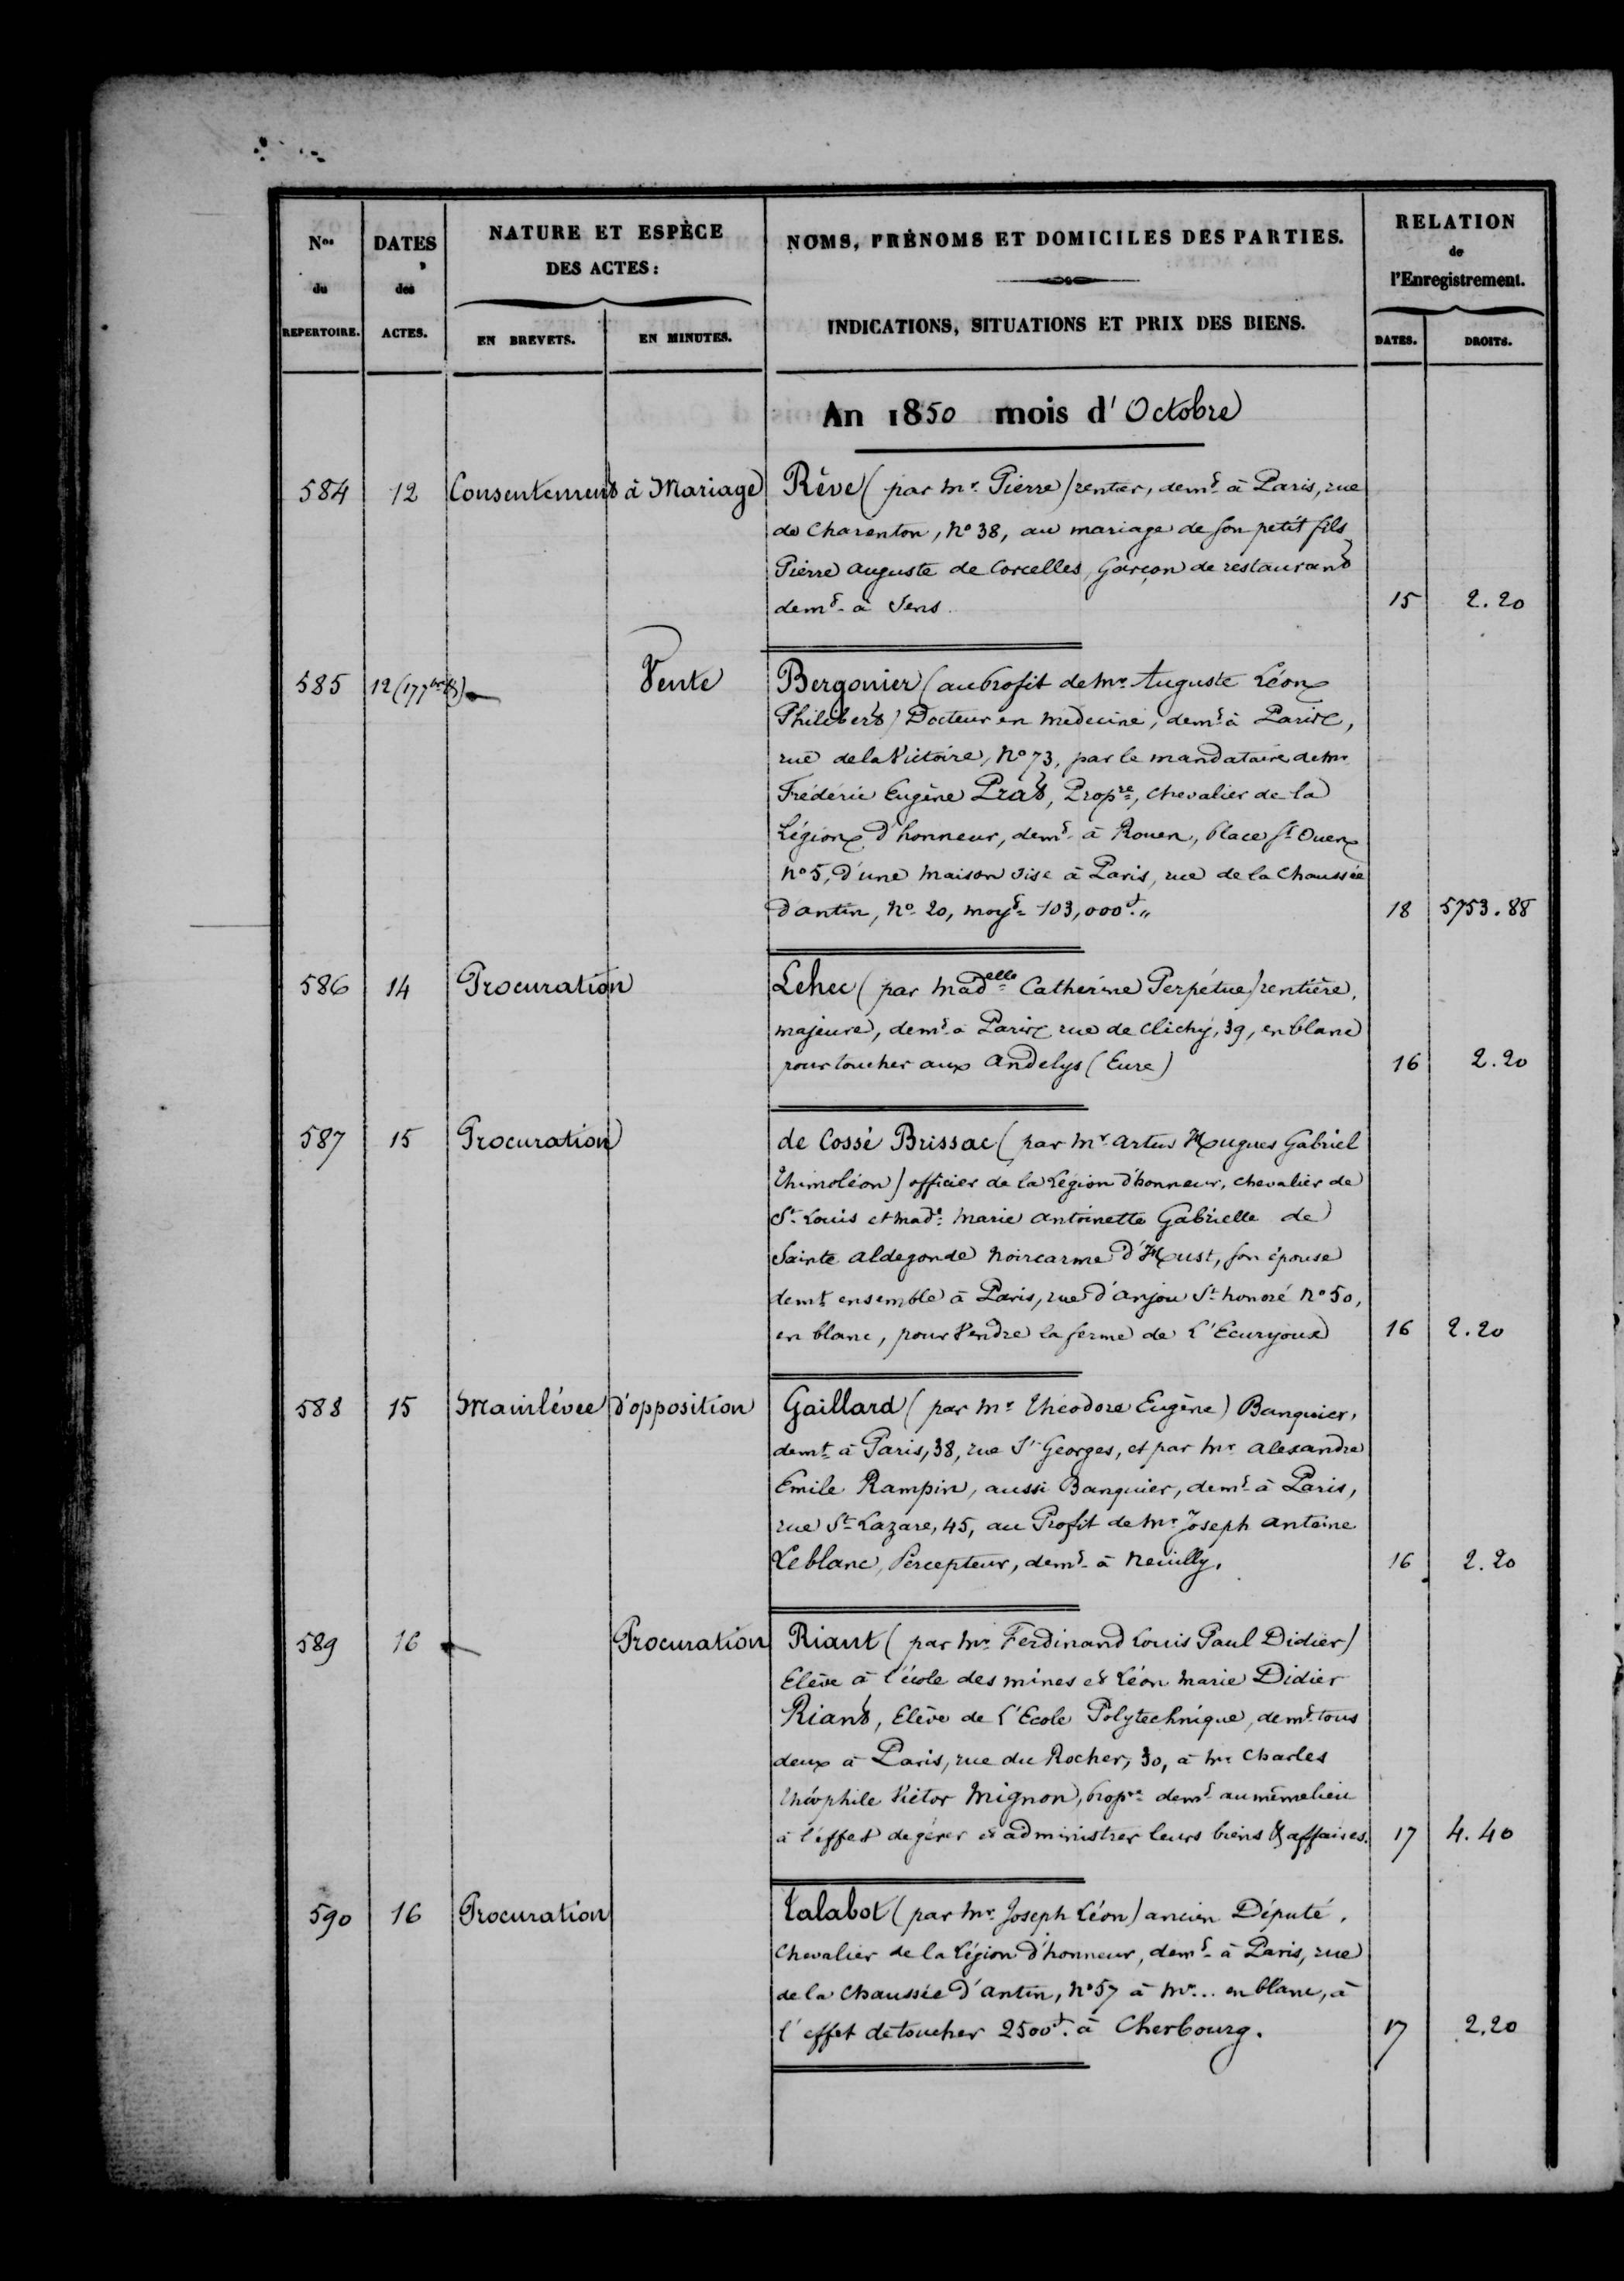 Nos du REPERTOIRE.
DATES des ACTES.
NATURE ET ESPÈCE DES ACTES:
EN BREVETS.
EN MINUTES.
NOMS, PRÉNOMS ET DOMICILES DES PARTIES.
INDICATIONS, SITUATIONS ET PRIX DES BIENS.
RELATION de l'Enregistrement.
DATES.
DROITS.
An 1850 mois d'Octobre
584 12 Consentement à Mariage Rêve (par Mr. Pierre) rentier, demt à Paris, rue
de Charenton, No 38, au mariage de son petit fils
Pierre Auguste de Corcelles, Garçon de restaurant
demt à Sens. 15 2.20
585 12 (177bre) Vente Bergonier (au profit de Mr. Auguste Léon
Philibert) Docteur en medecine, demt à Paris,
rue de la Victoire, No 73, par le mandataire de Mr
Frédéric Eugène Prat, Propre, Chevalier de la
Légion d'honneur, demt à Rouen, place St Ouen
No 5, d'une maison sise à Paris, rue de la Chaussée
d'antin, No 20, moyt 103,000f." 18 5753.88
586 14 Procuration Lehec (par Madelle Catherine Perpétue) rentière,
majeure, demt à Paris, rue de Clichy, 39, en blanc
pour toucher aux Andelys (Eure) 16 2.20
587 15 Procuration de Cossé Brissac (par Mr Artus Hugues Gabriel
Thimoléon) officier de la Légion d'honneur, chevalier de
St Louis et Made Marie Antoinette Gabrielle de
Sainte Aldegonde Noircarme d'Hust, son épouse
demt ensemble à Paris, rue d'anjou St honoré No 50,
en blanc, pour Vendre la ferme de L'Ecuryoux 16 2.20
588 15 Mainlévee d'opposition Gaillard (par Mr Théodore Eugène) Banquier,
demt à Paris, 38, rue St Georges, et par Mr Alexandre
Emile Rampin, aussi Banquier, demt à Paris,
rue St Lazare, 45, au Profit de Mr Joseph Antoine
Leblanc, Percepteur, demt à Neuilly. 16 2.20
589 16 Procuration Riant (par Mr. Ferdinand Louis Paul Didier)
Elève à l'école des mines et Léon Marie Didier
Riant, Elève de l'Ecole Polytechnique, demt tous
deux à Paris, rue du Rocher, 30, à Mr Charles
Théophile Victor Mignon, propre demt au même lieu
à l'effet de gérer et administrer leurs biens & affaires. 17 4.40
590 16 Procuration Talabot (par Mr. Joseph Léon) ancien Député,
Chevalier de la Légion d'honneur, demt à Paris, rue
de la Chaussée d'antin, No 57 à Mr... en blanc, à
l'effet de toucher 2500f. à Cherbourg. 17 2.20